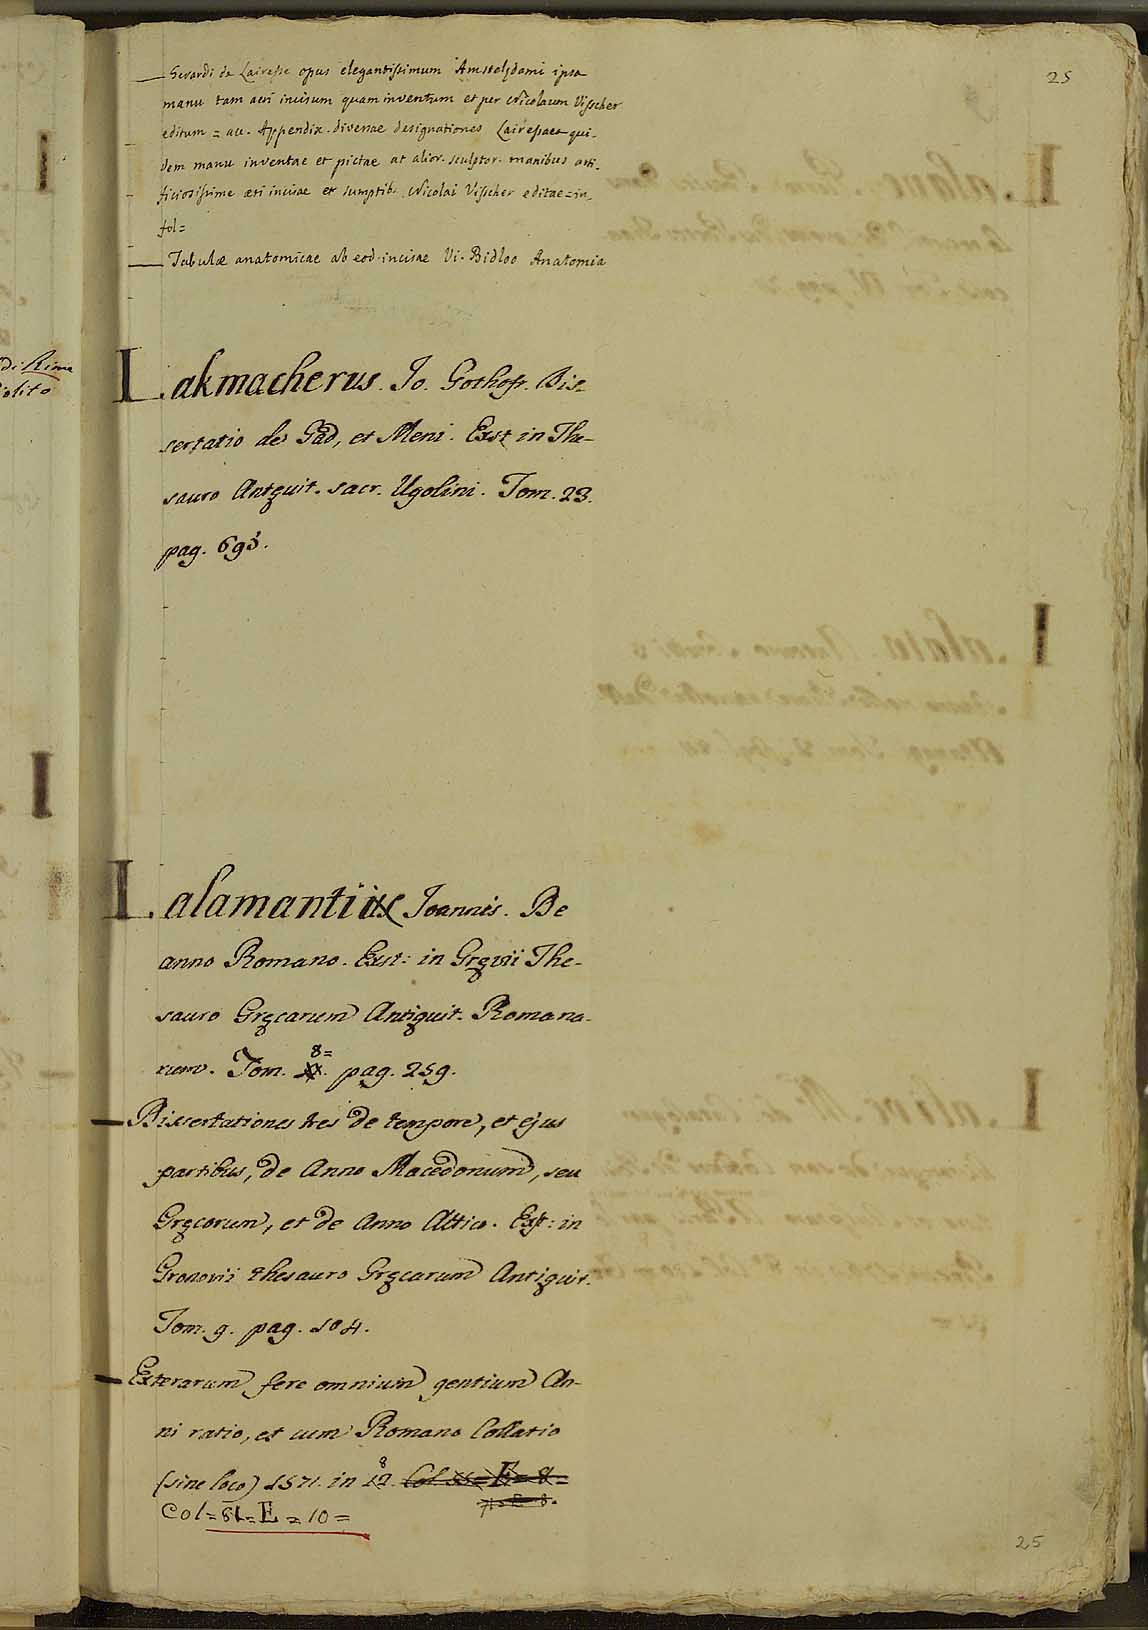 25
— Gerardi de Lairesse opus elegantissimum Amstelodami ipsa
manu tam aeri incisum quam inventum et per Nicolaum Visscher
editum = acc. Appendix. diversae designationes Lairessaea qui-
dem manu inventae et pictae at alior. sculptor. manibus arti-
ficiosissime aeri incisae et sumptib. Nicolai Visscher editae = in
fol =
— Tabulæ anatomicae ab eod. incisae Vi. Bidloo Anatomia
Lakmacherus. Jo. Gothofr. Dis-
sertatio de Gad, et Meni. Exst in The-
sauro Antquit. sacr. Ugolini. Tom. 23.
pag. 693.
Lalamantii Joannis. De
anno Romano. Exst: in Gręvii The-
sauro Gręcarum Antiquit. Romana-
rum. Tom. 8= pag. 259.
— Dissertationes tres de tempore, et ejus
partibus, de Anno Macedonum, seu
Gręcorum, et de Anno Attico. Exst: in
Gronovii thesauro Gręcarum Antiquit.
Tom. 9. pag. 104.
— Exterarum fere omnium gentium An-
ni ratio, et cum Romano Collatio
(sine loco) 1571. in 8. Col. = E = 8 =
Col = 61 = E = 10 =
di Rime
25